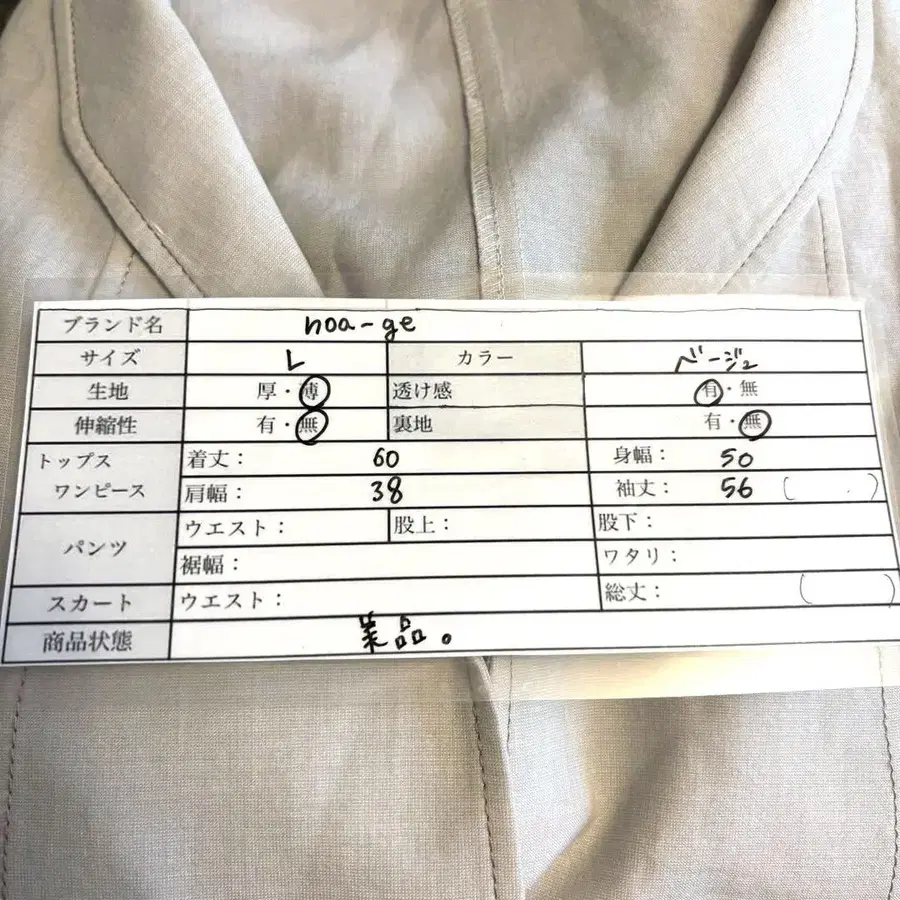 ブランド名 noa-ge
サイズ L カラー ベージュ
生地 厚・薄 透け感 有・無
伸縮性 有・無 裏地 有・無
トップス 着丈： 60 身幅： 50
ワンピース 肩幅： 38 袖丈： 56 ( . )
パンツ ウエスト： 股上： 股下：
裾幅： ワタリ：
スカート ウエスト： 総丈： ( )
商品状態 美品。